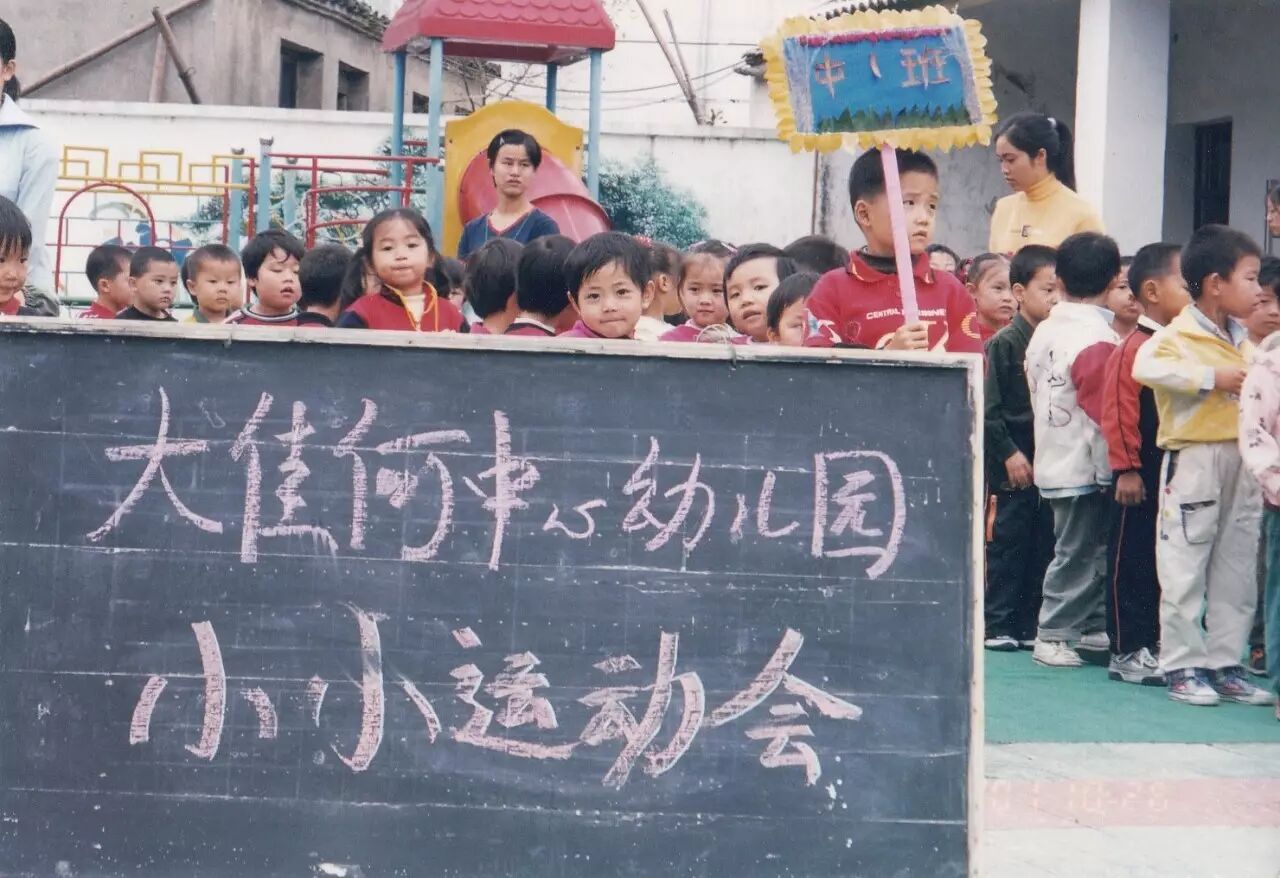 中1班
大佳何中心幼儿园
小小运动会